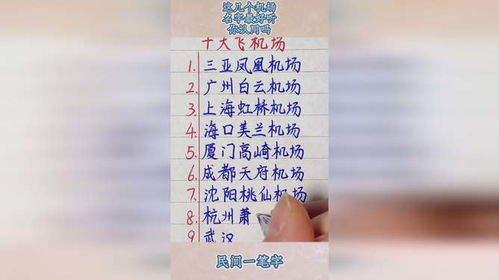 这几个机场
名字最好听
你认同吗
十大飞机场
1.三亚凤凰机场
2.广州白云机场
3.上海虹林机场
4.海口美兰机场
5.厦门高崎机场
6.成都天府机场
7.沈阳桃仙机场
8.杭州萧
9武汉
民间一笔字